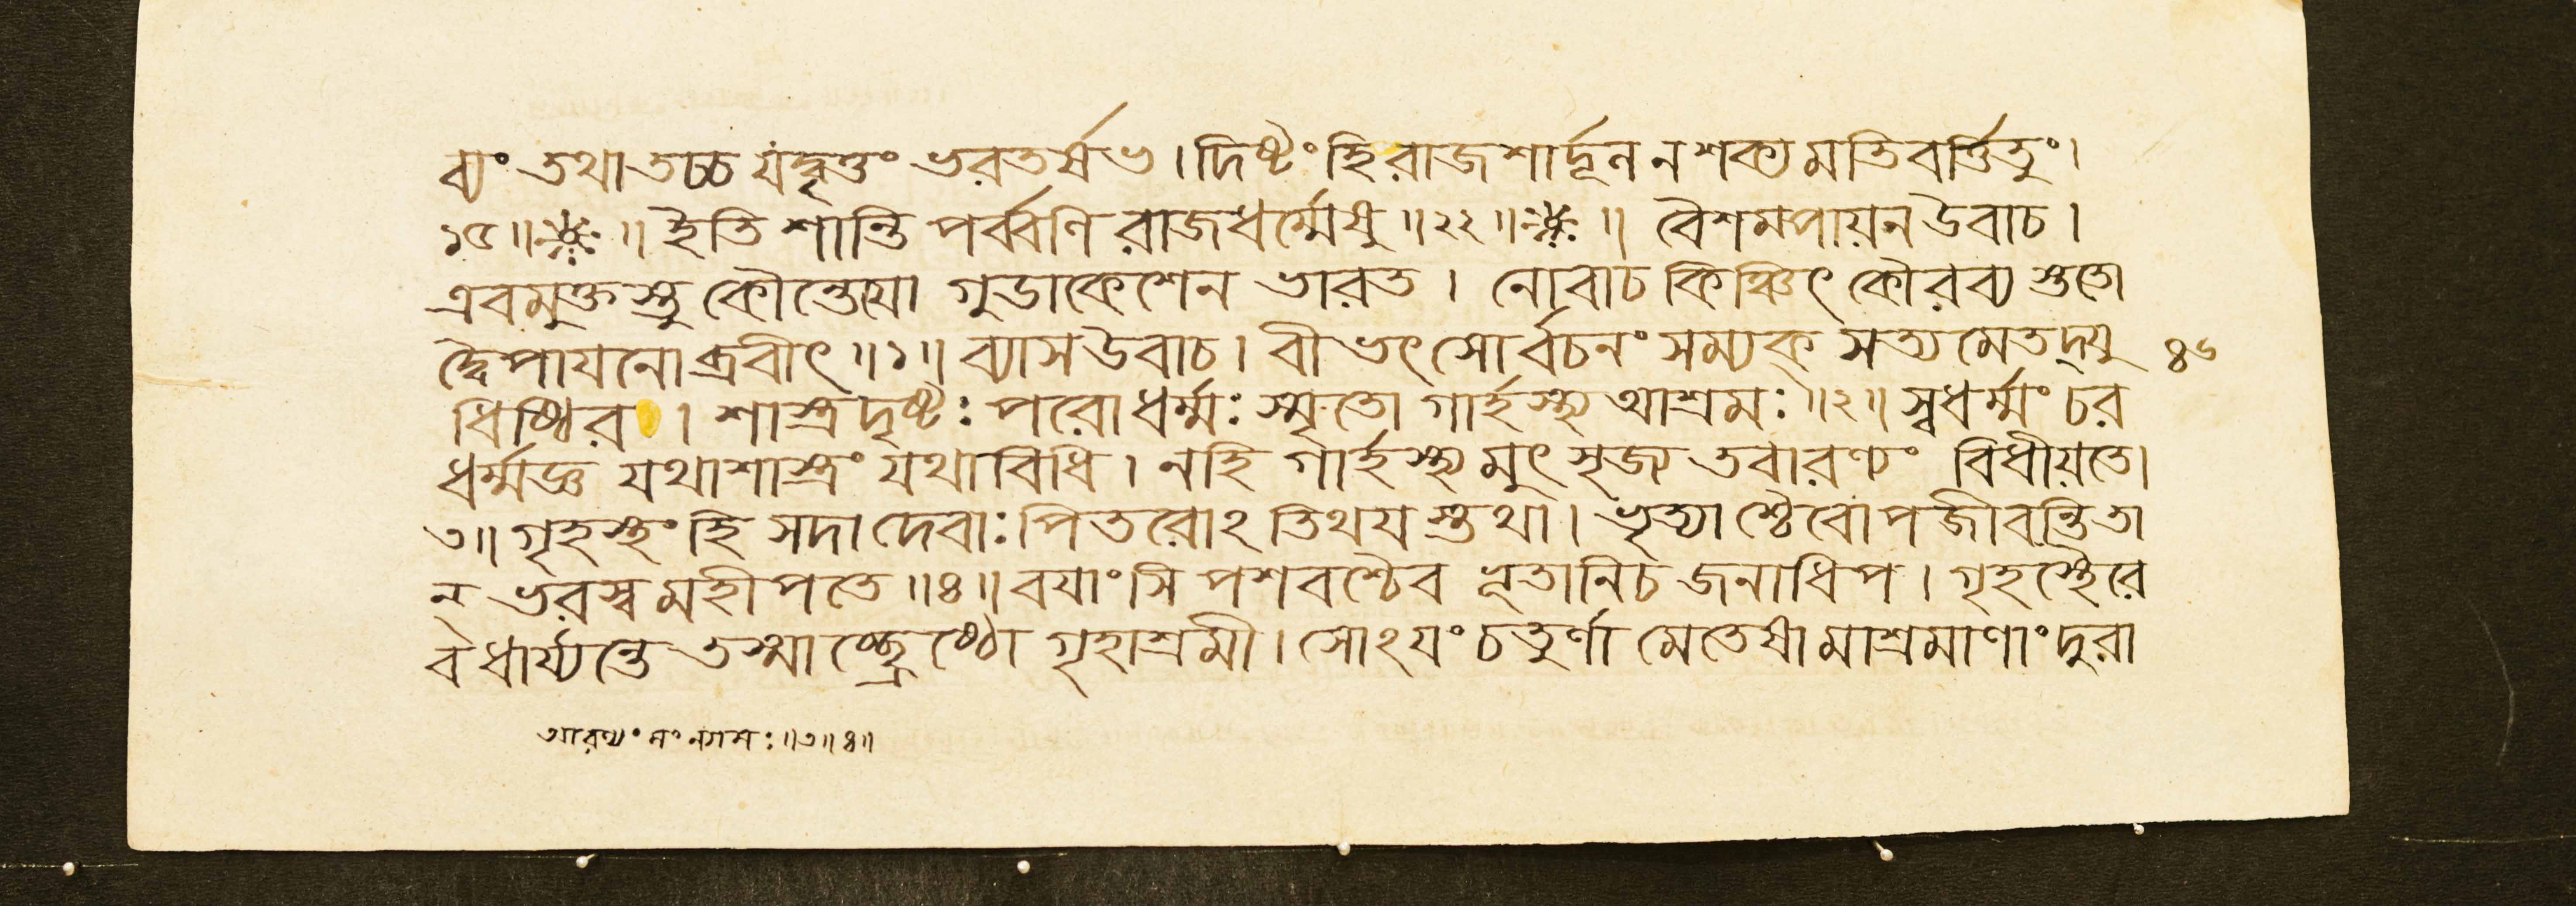 ব্যং তথা তচ্চ যদ্বৃত্তং ভরতর্ষভ। দিষ্টং হি রাজশার্দূল ন শক্যমতিবর্ত্তিতুং।
১৫॥ ॥ ইতি শান্তি পর্ব্বণি রাজধর্ম্মেষু॥২২॥ ॥ বৈশমপায়ন উবাচ।
এবমুক্তস্তু কৌন্তেয়ো গুডাকেশেন ভারত। নোবাচ কিঞ্চিৎ কৌরব্য স্ততো
দ্বৈপায়নোব্রবীৎ॥১॥ ব্যাস উবাচ। বীভৎসোর্বচনং সম্যক্ সত্যমেতদ্যু
৪৬
ধিষ্ঠির। শাস্ত্রদৃষ্টঃ পরোধর্ম্মঃ স্মৃতো গার্হস্থ্য আশ্রমঃ॥২॥ স্বধর্ম্মং চর
ধর্ম্মজ্ঞ যথাশাস্ত্রং যথাবিধি। নহি গার্হস্থ্যমুৎসৃজ্য তবারণ্যং বিধীয়তে।
৩॥ গৃহস্থং হি সদা দেবাঃ পিতরোঽতিথয়স্তথা। ভৃত্যাশ্চৈবোপজীবন্তি তা
ন্ ভরস্ব মহীপতে॥৪॥ বয়াংসি পশবশ্চৈব ভূতানি চ জনাধিপ। গৃহস্থৈরে
ব ধার্য্যন্তে তস্মাচ্ছ্রেষ্ঠো গৃহাশ্রমী। সোঽয়ং চতুর্ণামেতেষামাশ্রমাণাং দুরা
আরণ্যং